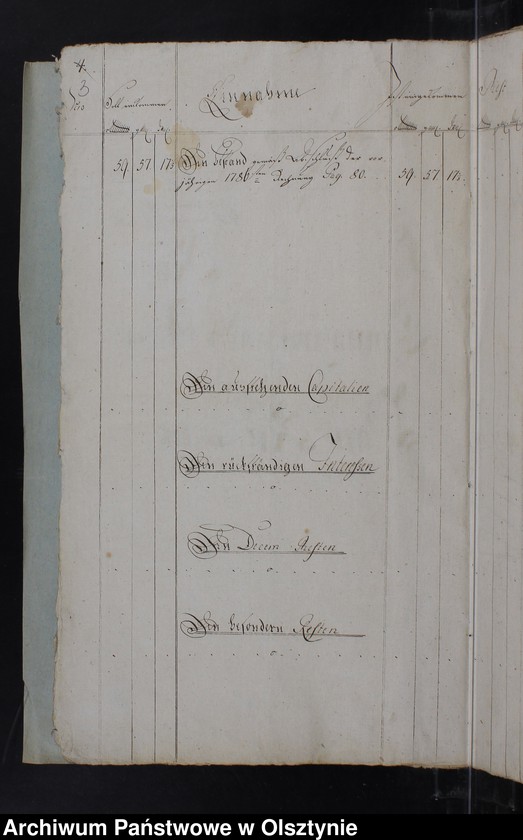 4.
3
Soll einkommen
Einnahme
Ist eingekommen
Rest
59. 57. 17½ An bestand gemäß Abschluß der vo-
rjährigen 1786ten Rechnung Pag. 80. 59. 57. 17½
An ausstehenden Capitalien
An rückständigen Interessen
An Decem Resten
An besondern Resten
Archiwum Państwowe w Olsztynie